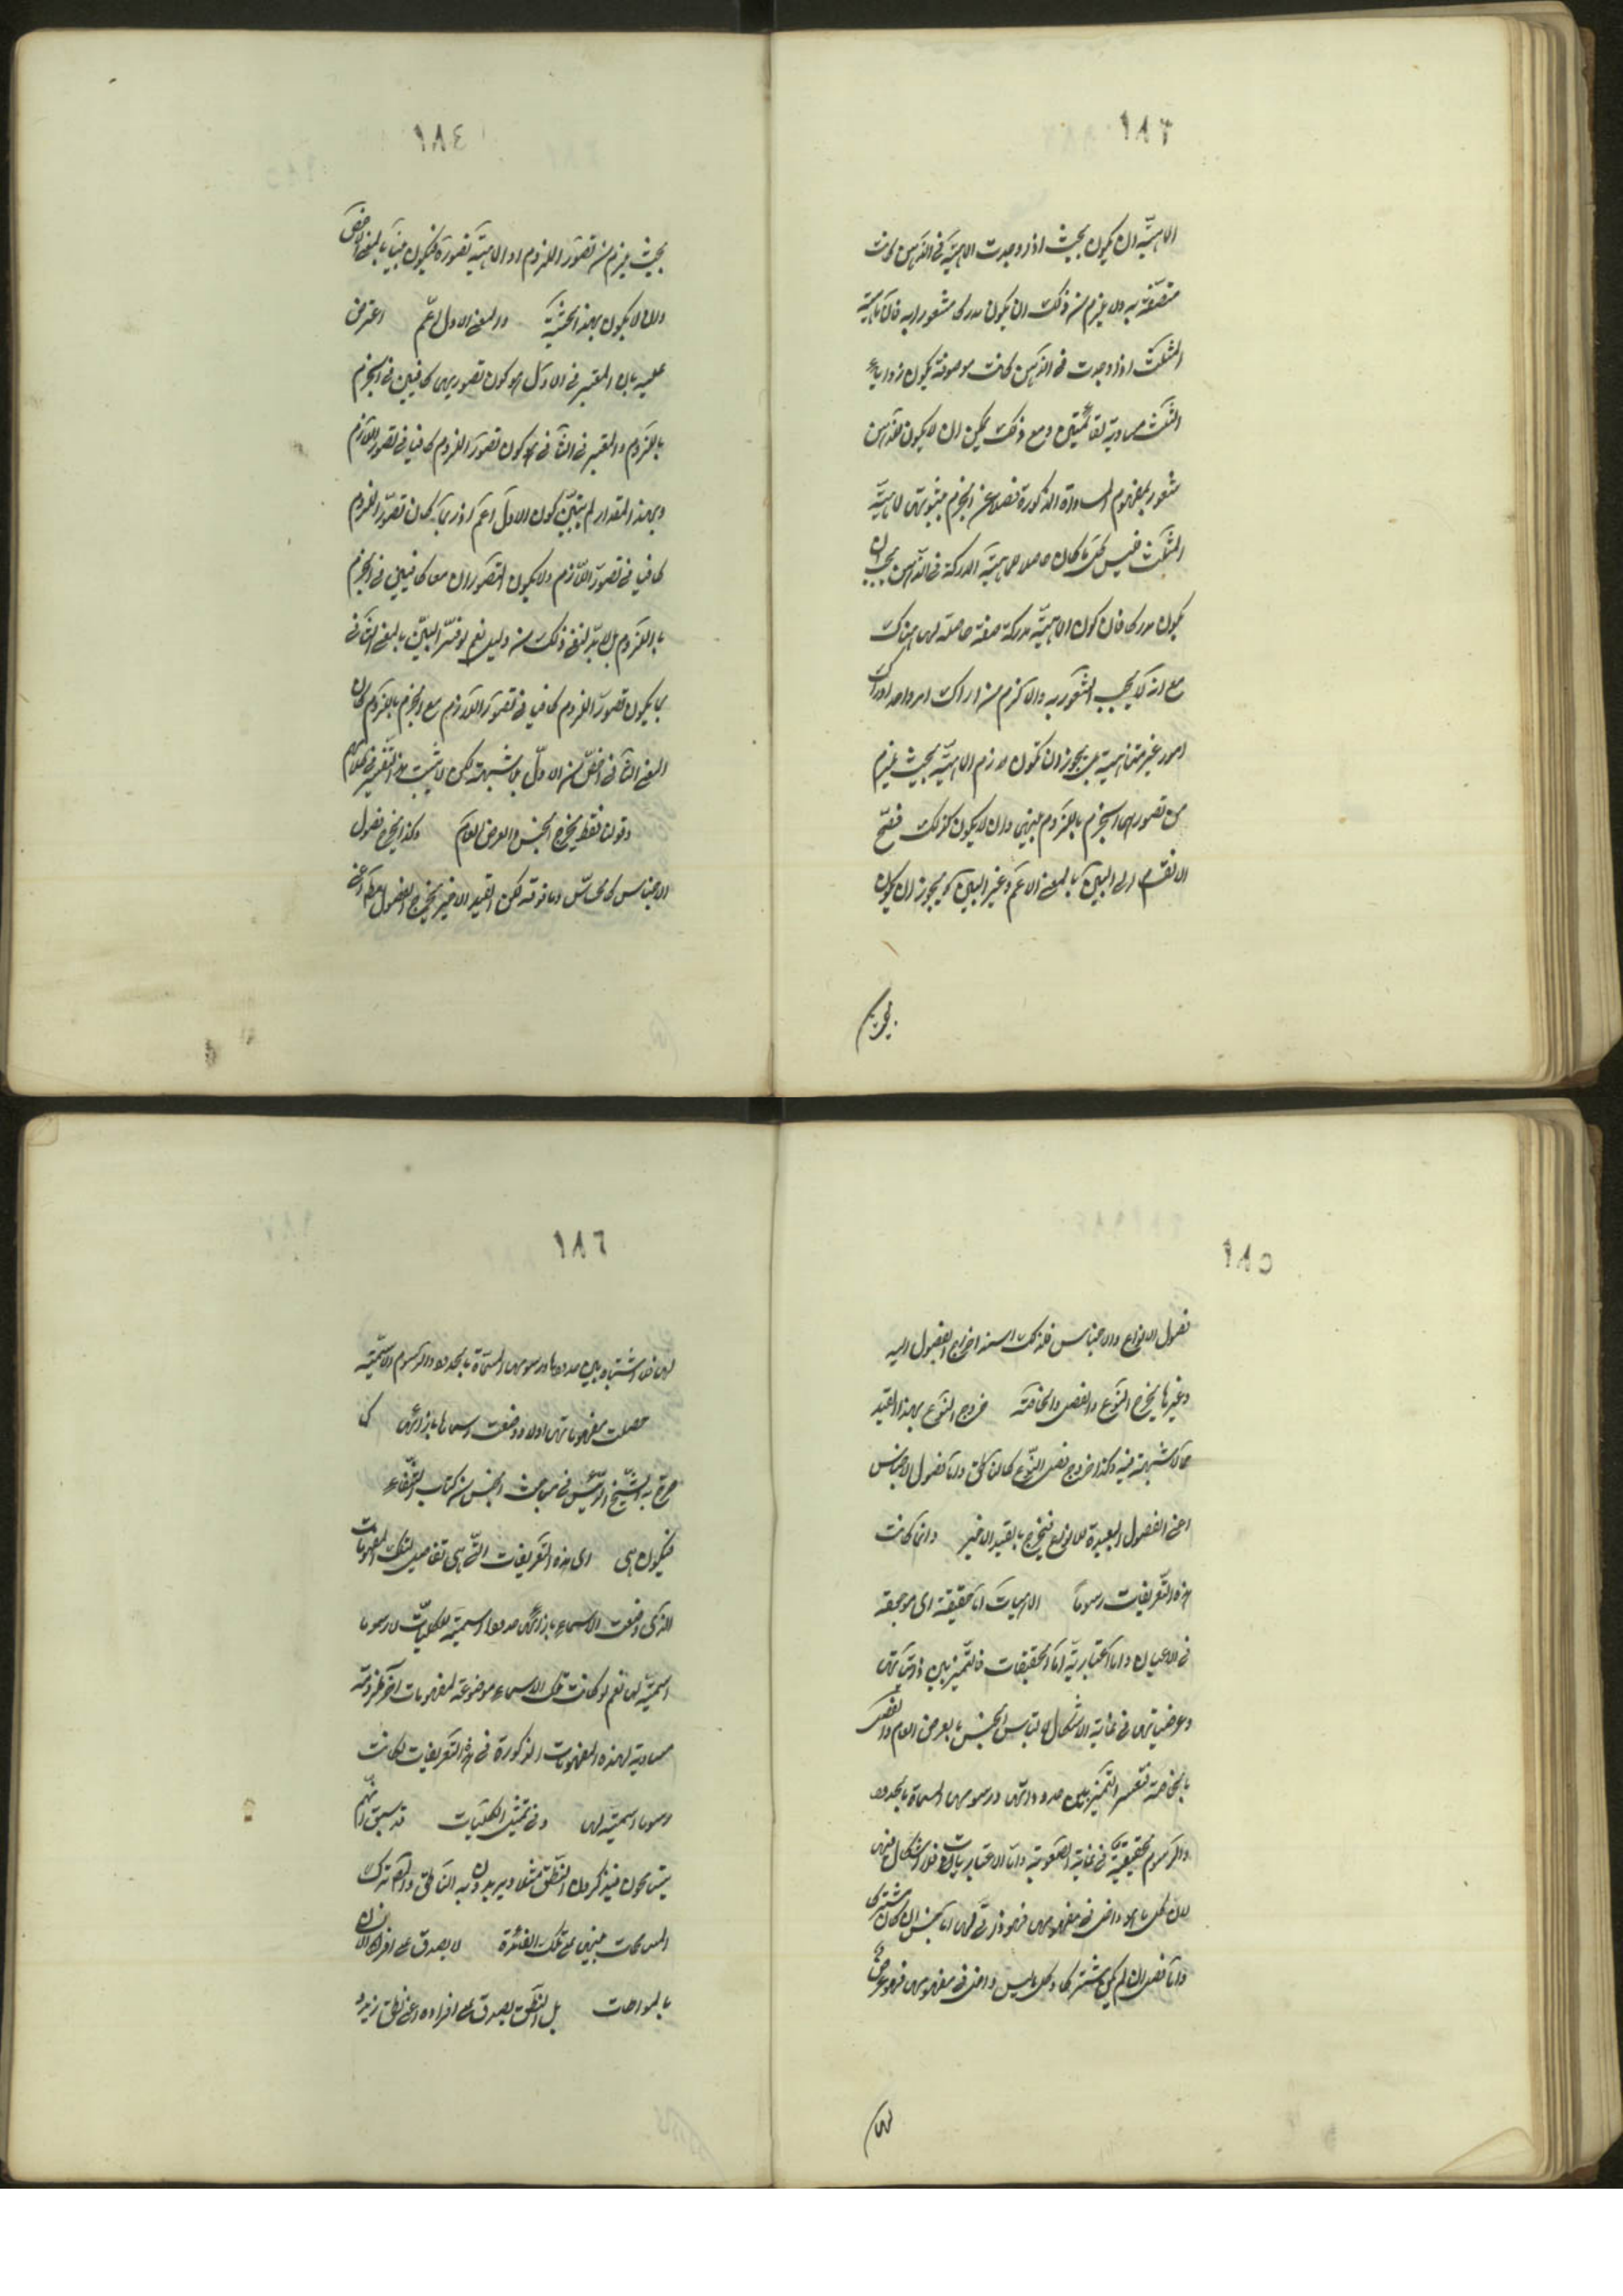 ١٨٣
الماهية ان يكون بحيث اذا وجدت الماهية في الذهن كانت
متصفة به ولا يلزم من ذلك ان يكون مدركا مشعورا به فان ماهية
المثلث اذا وجدت في الذهن كانت موصوفة بكون زواياه
الثلث مساوية لقائمتين ومع ذلك يمكن ان لا يكون للذهن
شعور بمفهوم المساواة المذكورة فضلا عن الجزم بثبوتها لماهية
المثلث فليس كل ما كان حاصلا لماهية المدركة في الذهن يجب ان
يكون مدركا فان كون الماهية مدركة صفة حاصلة لها هناك
مع انه لا يجب الشعور به والا لزم من ادراك امر واحد ادراك
امور غير متناهية بل يجوز ان تكون لازم الماهية بحيث يلزم
من تصورهما الجزم باللزوم بينهما وان لا يكون كذلك فصح
الانقسام الى البين بالمعنى الاعم وغير البين كما يجوز ان يكون
١٨٤
بحيث يلزم من تصور الملزوم او الماهية تصوره فيكون بينا بالمعنى الاخص
وان لا يكون بهذه الحيثية والمعنى الاول اعم اعترض
عليه بان المعتبر في الاول هو كون تصوريهما كافيين في الجزم
باللزوم والمعتبر في الثاني هو كون تصور الملزوم كافيا في تصور اللازم
وبهذا المقدار لم يتبين كون الاول اعم اذ ربما كان تصور الملزوم
كافيا في تصور اللازم ولا يكون التصوران معا كافيين في الجزم
باللزوم بل لا بد لنفي ذلك من دليل نعم لو فسر البين بالمعنى الثاني
بما يكون تصور الملزوم كافيا في تصور اللازم مع الجزم باللزوم كان
المعنى الثاني اخص من الاول بلا شبهة لكن لم يثبت هذا التفسير في كلامهم
وقولنا فقط يخرج الجنس والعرض العام وكذا يخرج فصول
الاجناس كالحساس وما فوقه لكن القيد الاخير يخرج الفصول مطلقا اعني
١٨٥
فصول الانواع والاجناس فلذلك اسند اخراج الفصول اليه
وغيرها يخرج النوع والفصل والخاصة خروج النوع بهذا القيد
مما لا شبهة فيه وكذا خروج فصل النوع كالناطق واما فصول الاجناس
اعني الفصول البعيدة للانواع فيخرج بالقيد الاخير وانما كانت
هذه التعريفات رسوما الماهيات اما حقيقية اي موجودة
في الاعيان واما اعتبارية اما الحقيقيات فالتميز بين ذاتياتها
وعرضياتها في غاية الاشكال لالتباس الجنس بالعرض العام والفصل
بالخاصة فتعسر التمييز بين حدودها ورسومها المسماة بالحدود
والرسوم الحقيقية في غاية الصعوبة واما الاعتباريات فلا اشكال فيها
لان كل ما هو داخل في مفهومها فهو ذاتي لها اما جنس ان كان مشتركا
واما فصل ان لم يكن مشتركا وكل ما ليس داخلا في مفهومها فهو عرضي
لها
١٨٦
لها فلا اشتباه بين حدودها ورسومها المسماة بالحدود والرسوم الاسمية
حصلت مفهوماتها اولا ووضعت اسماءها بازائها كما
صرح به الشيخ الرئيس في مباحث الجنس من كتاب الشفاء
فيكون هي اي هذه التعريفات التي هي تفاصيل لتلك المفهومات
التي وضعت الاسماء بازائها حدودا اسمية للكليات لا رسوما
اسمية لها نعم لو كانت تلك الاسماء موضوعة لمفهومات آخر ملزومة
مساوية لهذه المفهومات المذكورة في هذه التعريفات لكانت
رسوما اسمية لها وفي تمثيل الكليات قد سبق انهم
يتسامحون فيذكرون النطق مثلا ويريدون به الناطق
المسامحات مبني على تلك الفائدة لا يصدق على افراد الانسان
بالمواطات بل النطق يصدق على افراده اعني نطق زيد